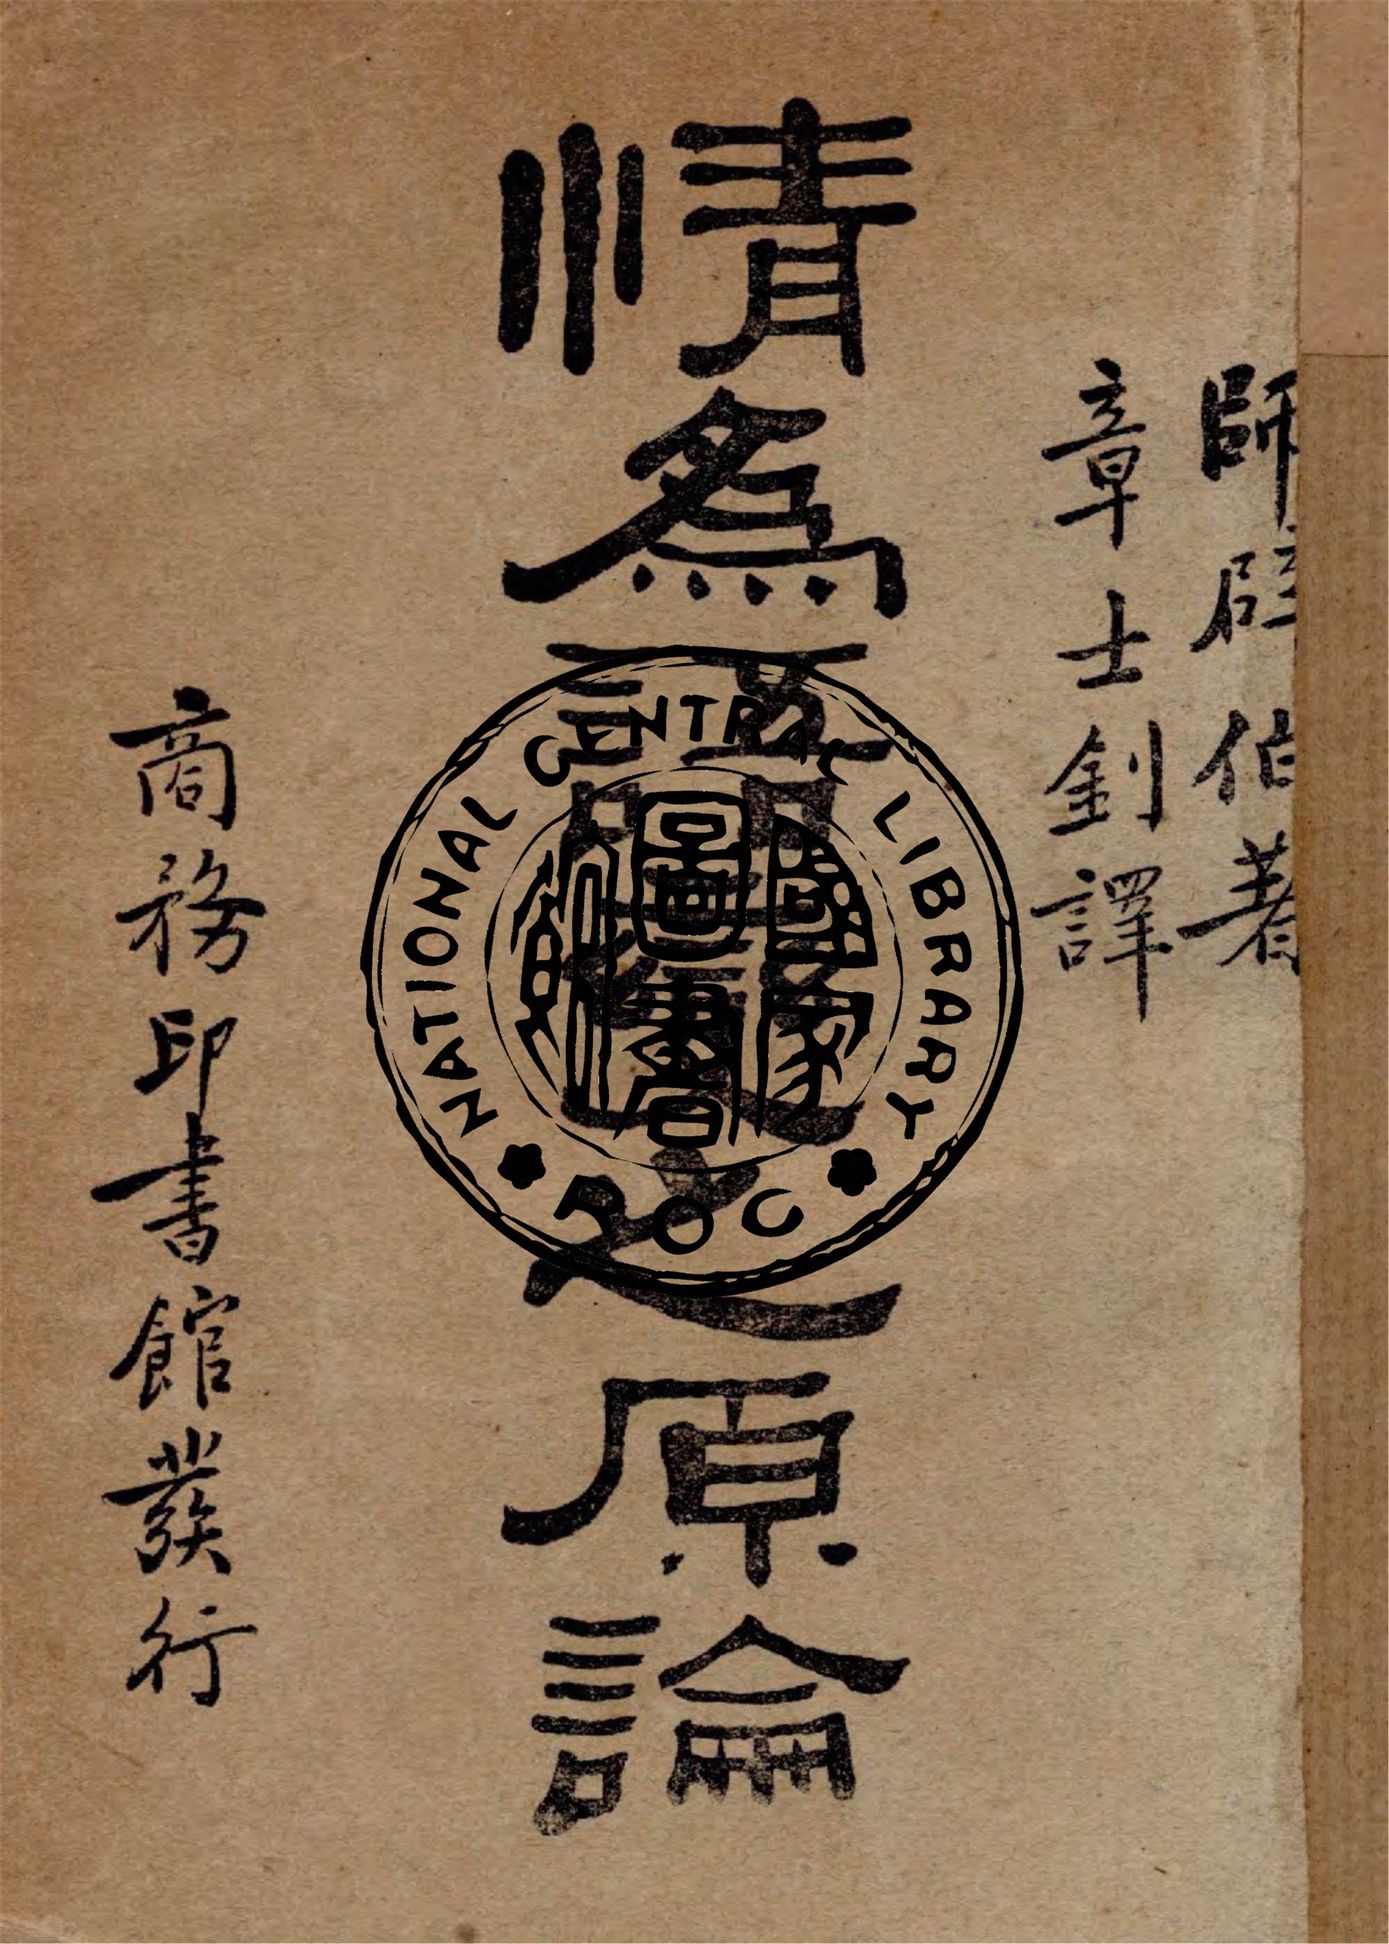 師辟伯著
章士釗譯
情為語變之原論
商務印書館發行
NATIONAL CENTRAL LIBRARY
國家
圖書
館
ROC